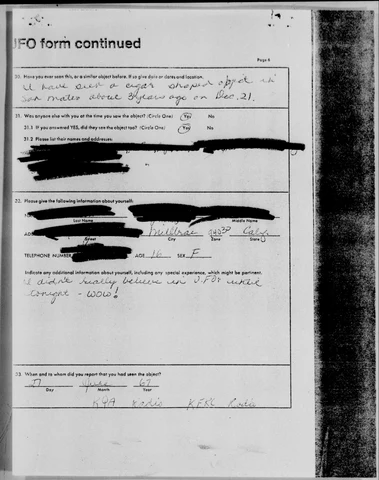 UFO form continued
Page 4
20. Have you ever seen this, or a similar object before. If so give date or dates and location.
I have seen a cigar shaped object in
San Mateo about 3 years ago on Dec. 21.
21. Was anyone else with you at the time you saw the object? (Circle One) Yes No
21.1 If you answered YES, did they see the object too? (Circle One) Yes No
21.2 Please list their names and addresses:
22. Please give the following information about yourself:
Last Name Middle Name
Millbrae Calif
Street City Zone State
TELEPHONE NUMBER AGE 16 SEX F
Indicate any additional information about yourself, including any special experience, which might be pertinent.
I didn't really believe in U.F.Os until
tonight - WOW!
23. When and to whom did you report that you had seen the object?
27 June 67
Day Month Year
KYA Radio KFRC Radio